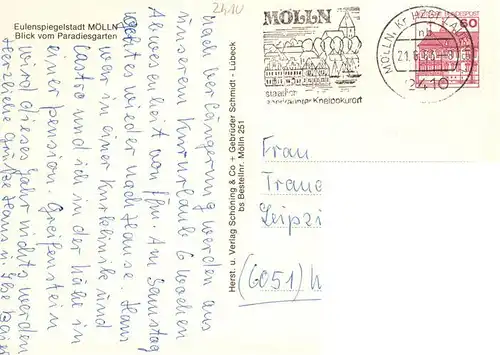 Eulenspiegelstadt MÖLLN
Blick vom Paradiesgarten
2410
MÖLLN
staatlich
anerkannter Kneippkurort
MÖLLN, KR HZGT LAUENB
2410
60
Nach Verlängerung werden aus
unserem Kurzurlaub 6 Wochen
Abwesenheit von Ffm. Am Samstag
geht es wieder nach Hause. Hans
war in einer Kurklinik und
Castro und ich in der Nähe in
einer Pension. Greifenstein
wird dieses Jahr nichts werden
Herzliche Grüße Hans u. Ilse
Herst. u. Verlag Schöning & Co + Gebrüder Schmidt - Lübeck
bs Bestellnr. Mölln 251
Frau
Traue
Leipzi
(6051)